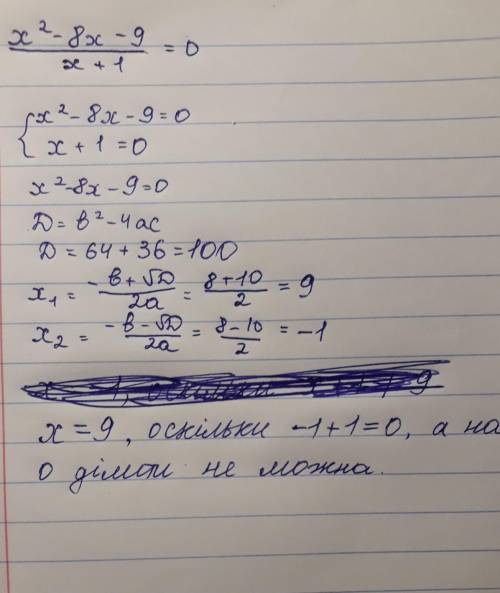 x² - 8x - 9 / x + 1 = 0
{ x² - 8x - 9 = 0
x + 1 = 0
x² - 8x - 9 = 0
D = b² - 4ac
D = 64 + 36 = 100
x₁ = -b + √D / 2a = 8 + 10 / 2 = 9
x₂ = -b - √D / 2a = 8 - 10 / 2 = -1
x = 9, оскільки -1 + 1 = 0, а на
0 ділити не можна.